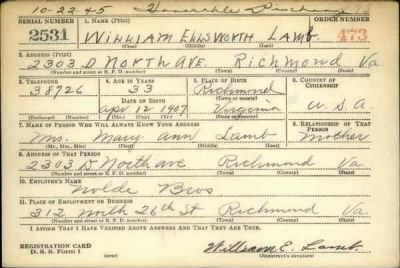 10-22-45 Honorable Discharge
SERIAL NUMBER 1. NAME (Print) ORDER NUMBER
2531 WILLIAM ELLSWORTH LAMB 473
(First) (Middle) (Last)
2. ADDRESS (Print)
2303 D NORTH AVE. RICHMOND VA
(Number and street or R. F. D. number) (Town) (County) (State)
3. TELEPHONE 4. AGE IN YEARS 5. PLACE OF BIRTH 6. COUNTRY OF CITIZENSHIP
38726 33 Richmond
DATE OF BIRTH (Town or county)
Apr 12 1907 Virginia U.S.A.
(Exchange) (Number) (Mo.) (Day) (Yr.) (State or country)
7. NAME OF PERSON WHO WILL ALWAYS KNOW YOUR ADDRESS 8. RELATIONSHIP OF THAT PERSON
Mrs. Mary Ann Lamb Mother
(Mr., Mrs., Miss) (First) (Middle) (Last)
9. ADDRESS OF THAT PERSON
2303 D North ave Richmond Va.
(Number and street or R. F. D. number) (Town) (County) (State)
10. EMPLOYER'S NAME
Nolde Bros
11. PLACE OF EMPLOYMENT OR BUSINESS
312 North 26th St Richmond Va
(Number and street or R. F. D. number) (Town) (County) (State)
I AFFIRM THAT I HAVE VERIFIED ABOVE ANSWERS AND THAT THEY ARE TRUE.
REGISTRATION CARD
D. S. S. FORM 1 (over) William E. Lamb
(Registrant's signature)